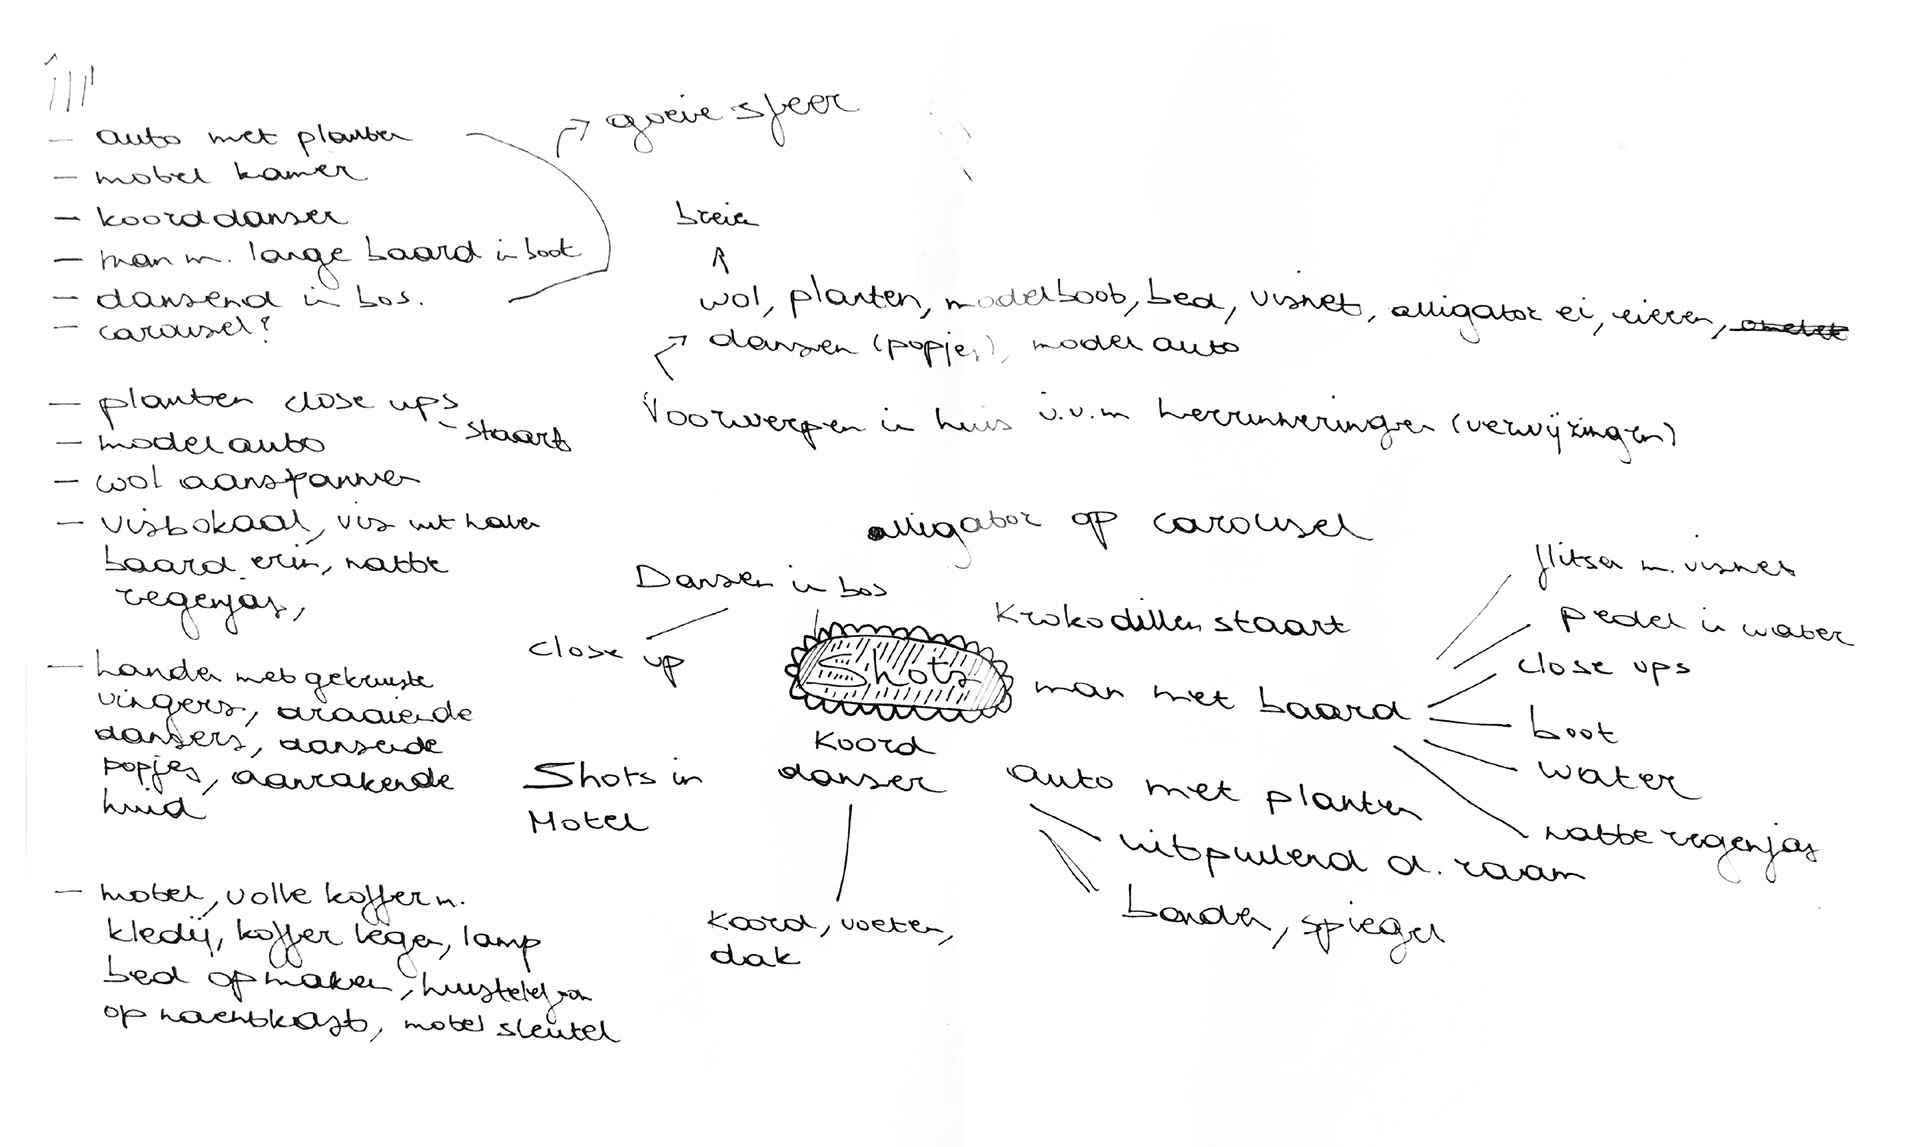 - auto met planten
- motel kamer
- koorddanser
- man m. lange baard in boot
- dansend in bos.
- carousel?
goeie sfeer
- planten close ups
- staart
- model auto
- wol aanspannen
- visbokaal, vis met halen
baard erin, natte
regenjas,
- handen met gekruiste
vingers, draaiende
dansers, dansende
popjes, aanrakende
huid
- motel, volle koffer m.
kledij, koffer legen, lamp
bed opmaken, huistelefoon
op nachtkastje, motel sleutel
breien
wol, planten, modelboot, bed, visnet, alligator ei, eieren, omelet
dansen (popjes), model auto
Voorwerpen in huis i.v.m herrinneringen (verwijzingen)
alligator op carousel
Dansen in bos
close up
Shots
Krokodillen staart
man met baard
flitsen m. visnet
pedel in water
close ups
boot
water
natte regenjas
Koord
danser
Koord, voeten,
dak
Shots in
Motel
auto met planten
uitpuilend d. raam
banden, spiegel